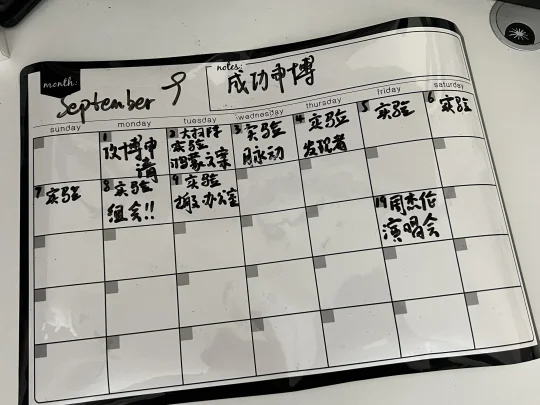 month:
September 9
notes:
成功申博
sunday monday tuesday wednesday thursday friday saturday
1 2 大扫除 3 实验 4 实验 5 实验 6 实验
博申请 实验 脉动 发现者
文案
7 实验 8 实验 9 实验
组会!! 办公室
19 周杰伦
演唱会